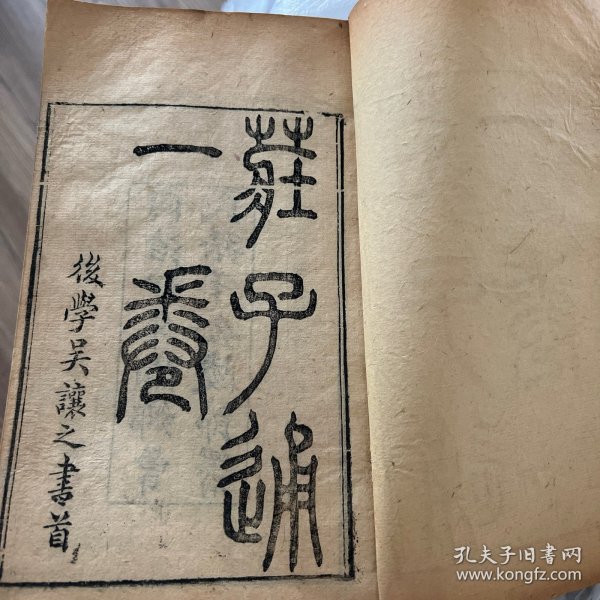 莊子通
一卷
後學吳讓之書首
孔夫子旧书网
www.kongfz.com